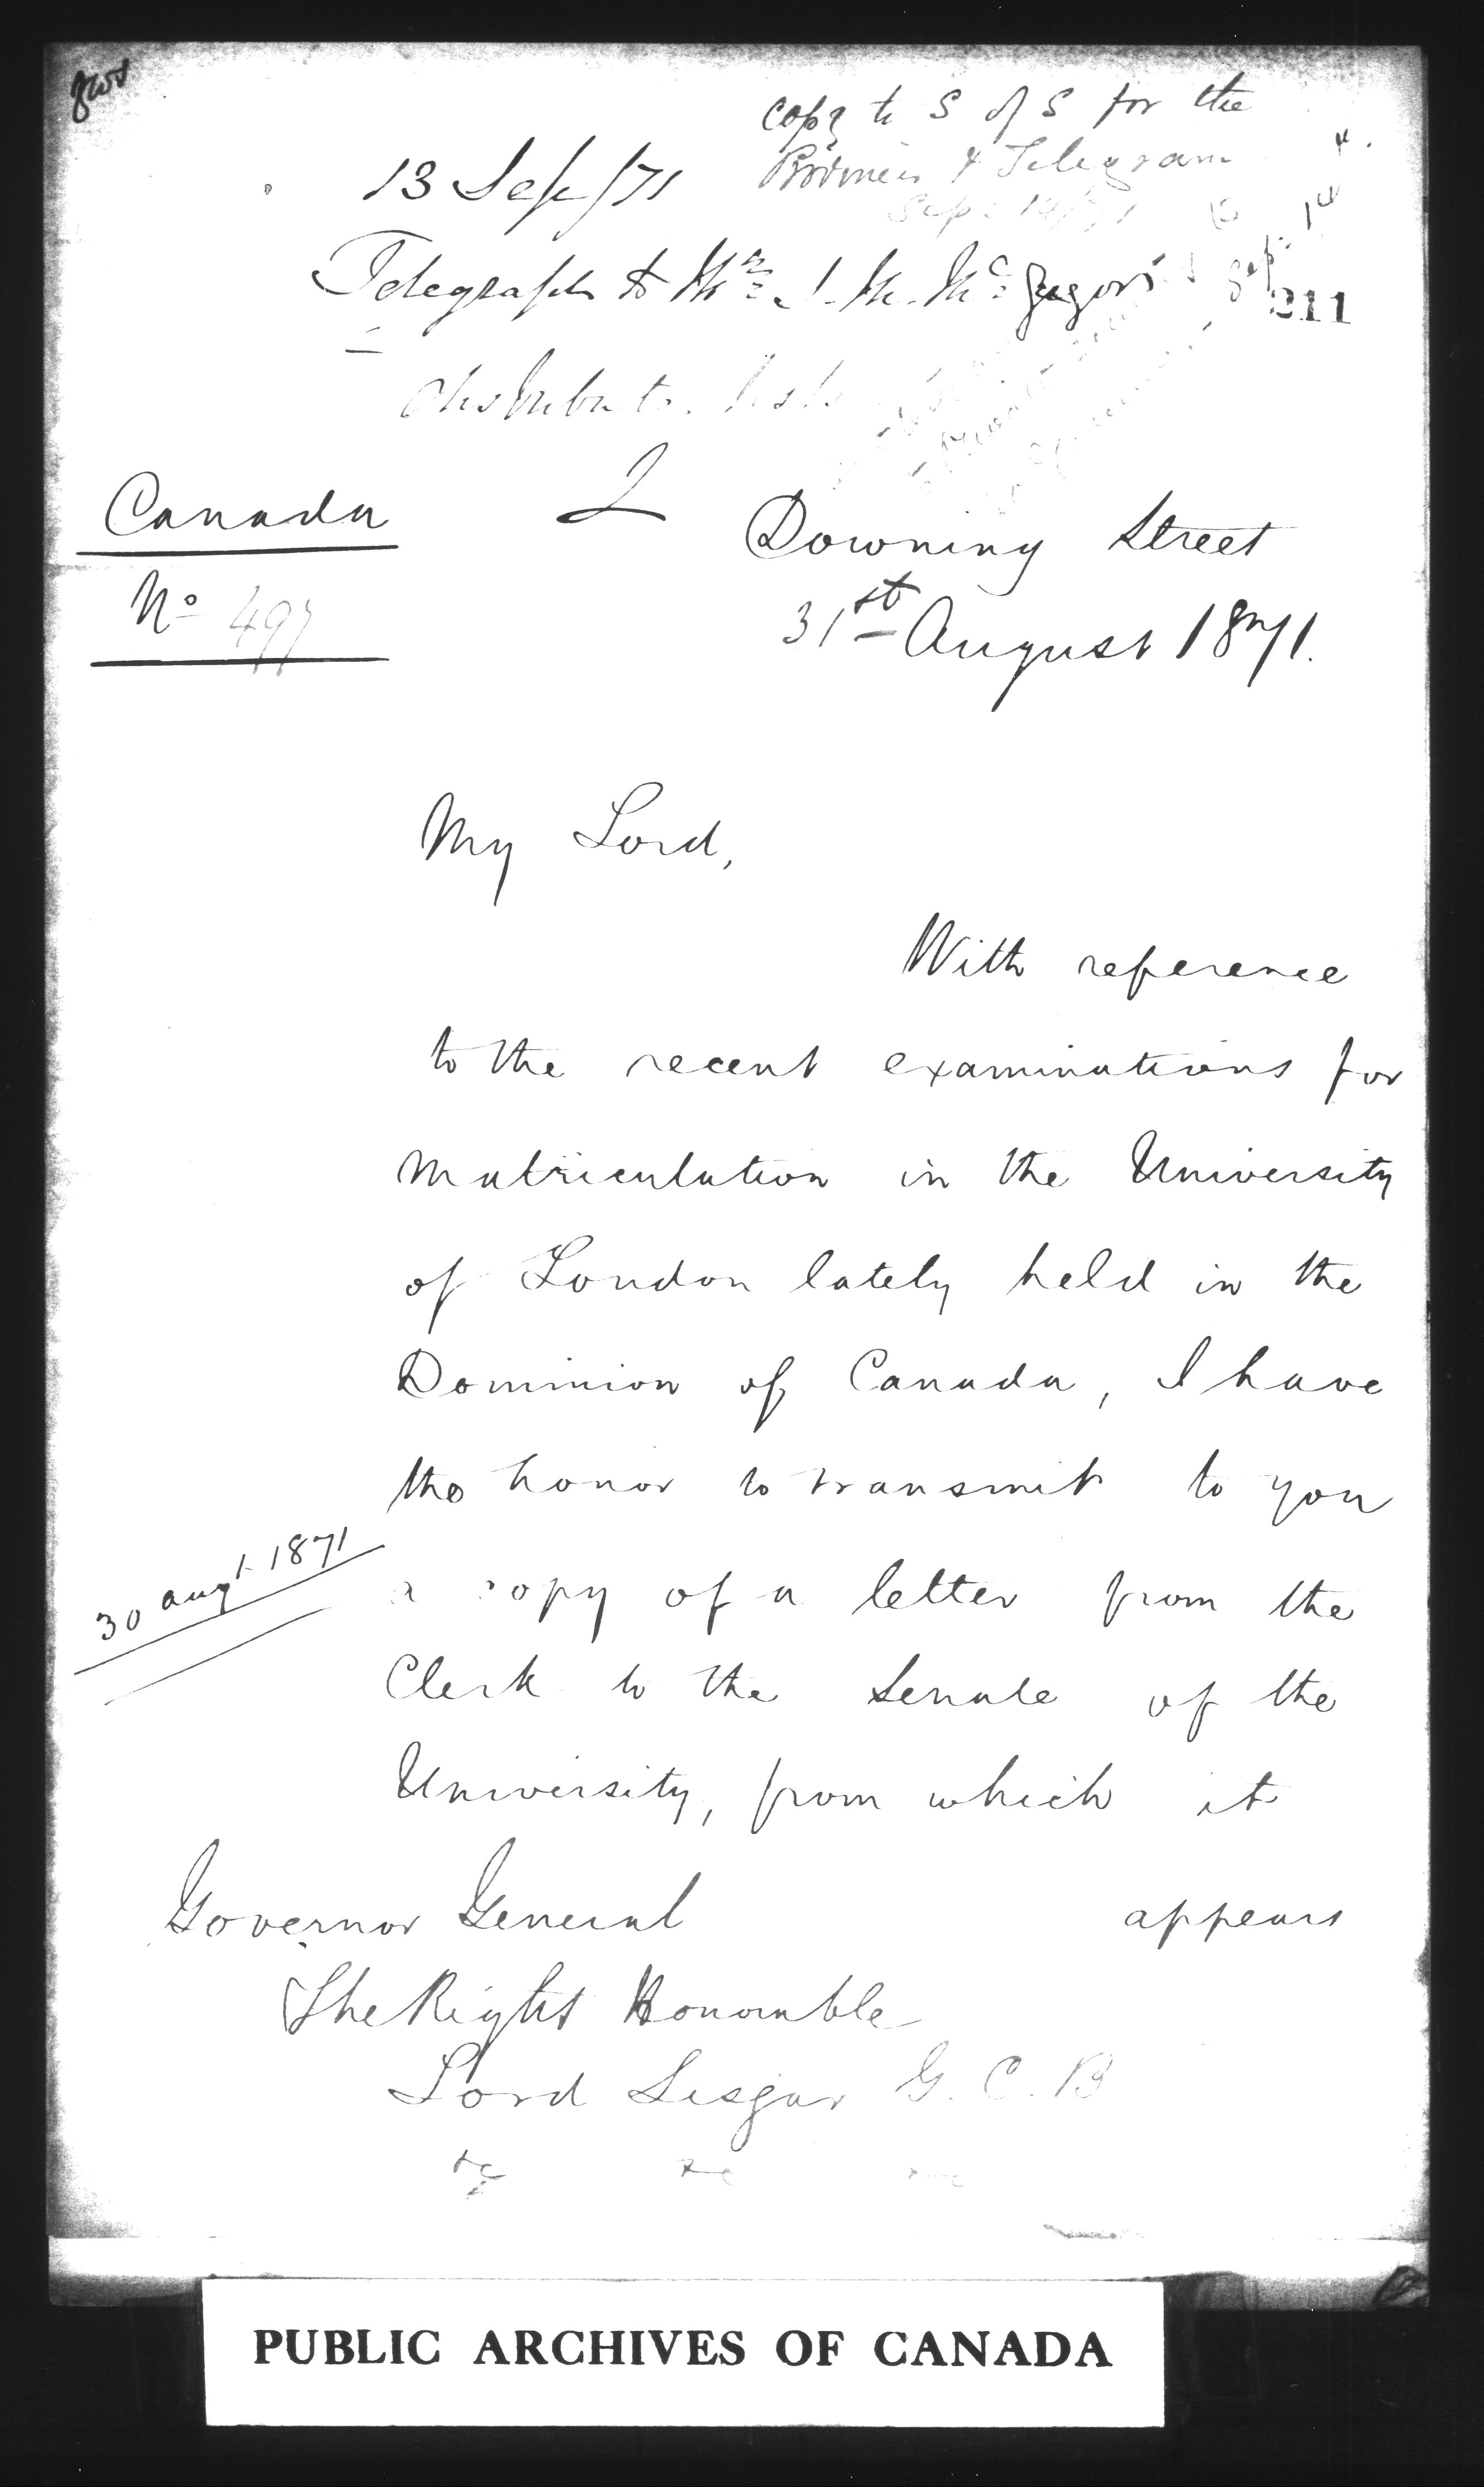 copy to S of S for the
Provinces & Telegram
Sep: 14/71
13 Sep/71
Telegraph to Mr J. M. McGregor
211
Canada
No 497
Downing Street
31st August 1871.
My Lord,
With reference
to the recent examinations for
Matriculation in the University
of London lately held in the
Dominion of Canada, I have
the honor to transmit to you
30 Augt 1871
a copy of a letter from the
Clerk to the Senate of the
University, from which it
appears
Governor General
The Right Honorable
Lord Lisgar G. C. B
&c &c &c
PUBLIC ARCHIVES OF CANADA